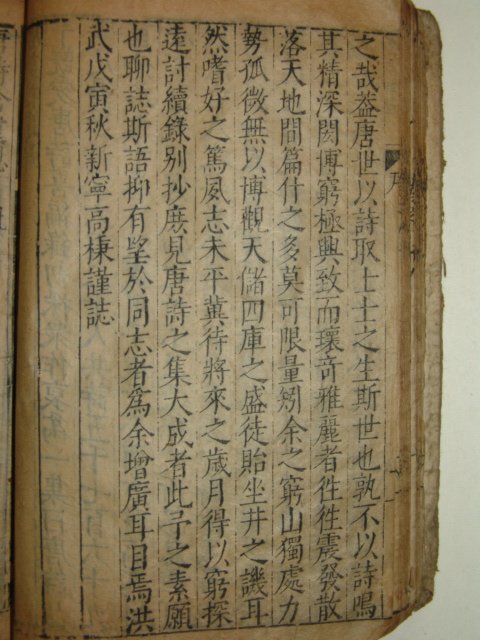 之哉葢唐世以詩取士士之生斯世也孰不以詩鳴
其精深閎博窮極興致而瓌竒雅麗者徃徃震發散
落天地間篇什之多莫可限量矧余之窮山獨處力
勢孤微無以博觀天儲四庫之盛徒貽坐井之譏耳
然嗜好之篤夙志未平冀待將來之歲月得以窮探
遠討續錄別抄庻見唐詩之集大成者此予之素願
也聊誌斯語抑有望於同志者為余增廣耳目焉洪
武戊寅秋新寧高棅謹誌